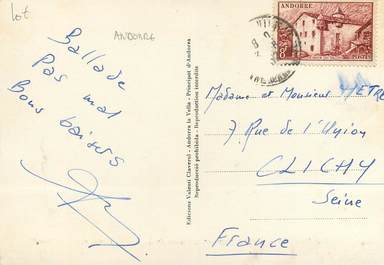 lot
ANDORRE
Ballade
Pas mal
Bons baisers
Edicions Valentí Claverol - Andorra la Vella - Principat d'Andorra
Reproducció prohibida - Reproduction interdite
ANDORRE
8F
POSTES
Madame et Monsieur METRE
7 Rue de l'Union
CLICHY
Seine
France